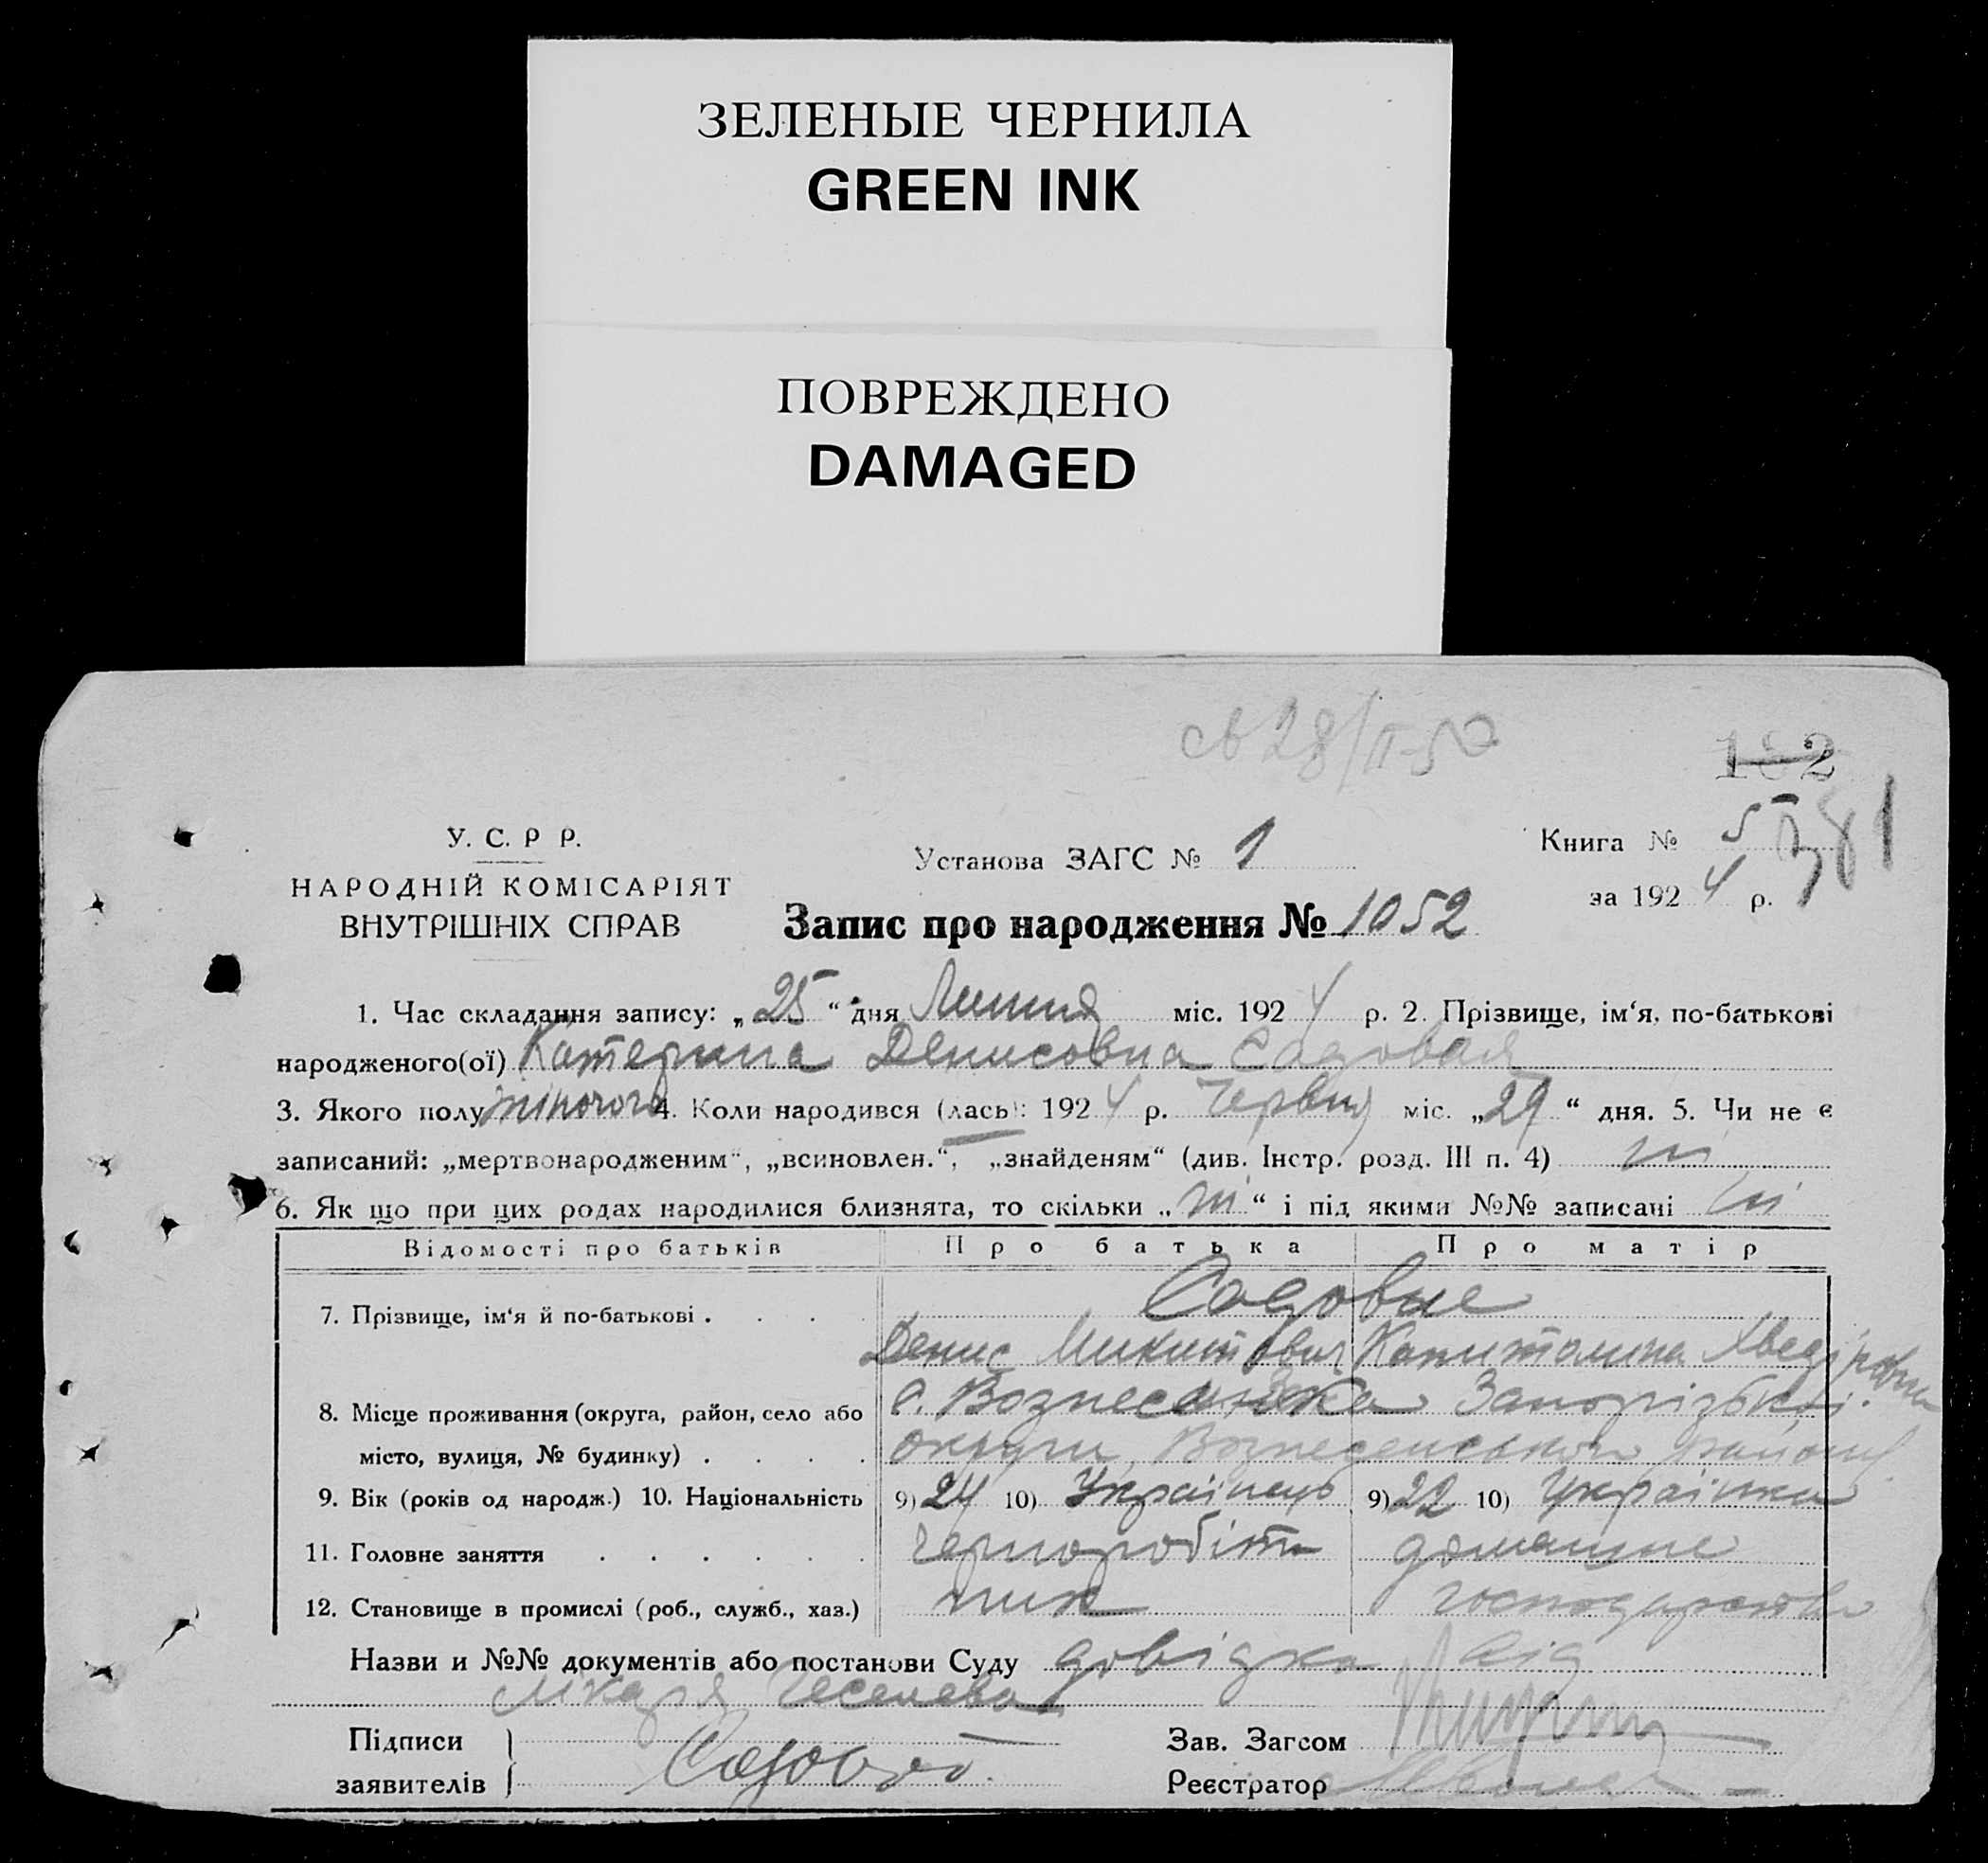 ЗЕЛЕНЫЕ ЧЕРНИЛА
GREEN INK
ПОВРЕЖДЕНО
DAMAGED
28/II-50
182
381
У. С. Р Р.
НАРОДНІЙ КОМІСАРІЯТ
ВНУТРІШНІХ СПРАВ
Установа ЗАГС № 1
Книга № 5
за 1924 р.
Запис про народження № 1052
1. Час складання запису: „25“ дня Липня міс. 1924 р. 2. Прізвище, ім‘я, по-батькові
народженого(ої) Катерина Денисовна Садовая
3. Якого полу жіночого 4. Коли народився (лась): 1924 р. Червня міс. „29“ дня. 5. Чи не є
записаний: „мертвонародженим“, „всиновлен.“, „знайденям“ (див. Інстр. розд. III п. 4) ні
6. Як що при цих родах народилися близнята, то скільки „ні“ і під якими №№ записані ні
Відомості про батьків Про батька Про матір
7. Прізвище, ім‘я й по-батькові . . . . Садовые
Денис Микитович Капитолина
8. Місце проживання (округа, район, село або с. Вознесенка Запорізької
місто, вулиця, № будинку) . . . . округи, Вознесенського району
9. Вік (років од народж.) 10. Національність 9) 24 10) Українець 9) 22 10) Українка
11. Головне заняття . . . . . . чорноробіт домашнє
12. Становище в промислі (роб., служб., хаз.) ник господарство
Назви и №№ документів або постанови Суду довідка від
лікаря
Підписи
заявителів Садовой
Зав. Загсом
Реєстратор